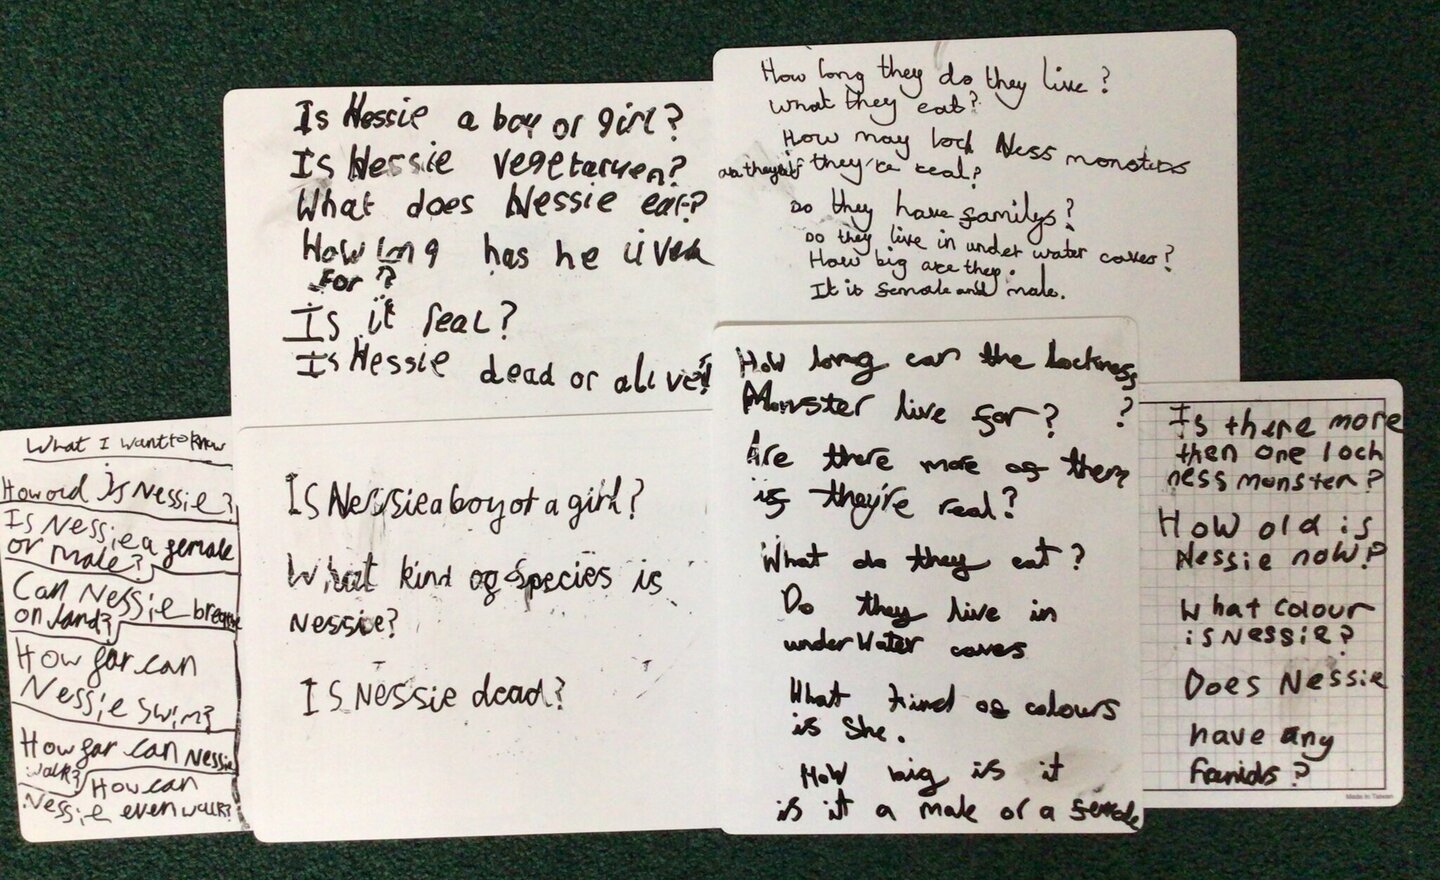 Is Nessie a boy or girl?
Is Nessie vegetaruen?
What does Nessie eat?
How long has he lived
For?
Is it real?
Is Nessie dead or alive?
How long they do they live?
what they eat?
How may loch Ness monsters
are they if they're real?
Do they have familys?
Do they live in under water caves?
How big are they.
It is female and male.
What I want to know
How old is Nessie?
Is Nessie a female
or male?
Can Nessie breathe
on land?
How far can
Nessie swim?
How far can Nessie
walk? How can
Nessie even walk?
Is Nessie a boy or a girl?
What kind of species is
Nessie?
Is Nessie dead?
How long can the lockness
Monster live for? ?
Are there more of them
if they're real?
What do they eat?
Do they live in
underWater caves
What kind of colours
is she.
How big is it
is it a male or a female
Is there more
then one loch
ness monster?
How old is
Nessie now?
What colour
is Nessie?
Does Nessie
have any
Made in Taiwan